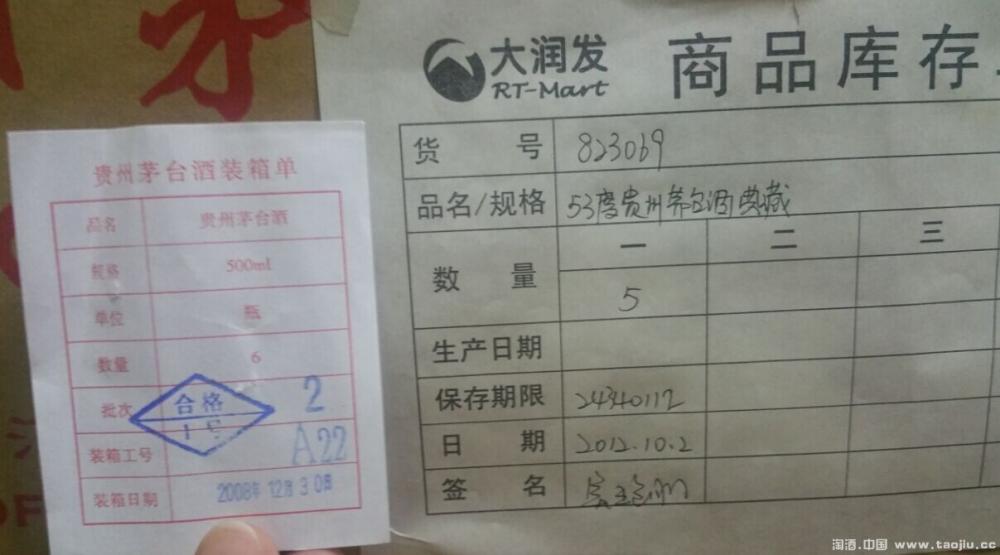 贵州茅台酒装箱单
品名 贵州茅台酒
规格 500ml
单位 瓶
数量 6
批次 2
合格
1号
装箱工号 A22
装箱日期 2008年12月30日
大润发
RT-Mart
商品库存
货号 823069
品名/规格 53度贵州茅台酒典藏
一 二 三
数量 5
生产日期
保存期限
日期 2012.10.2
签名
淘酒.中国 www.taojiu.cc